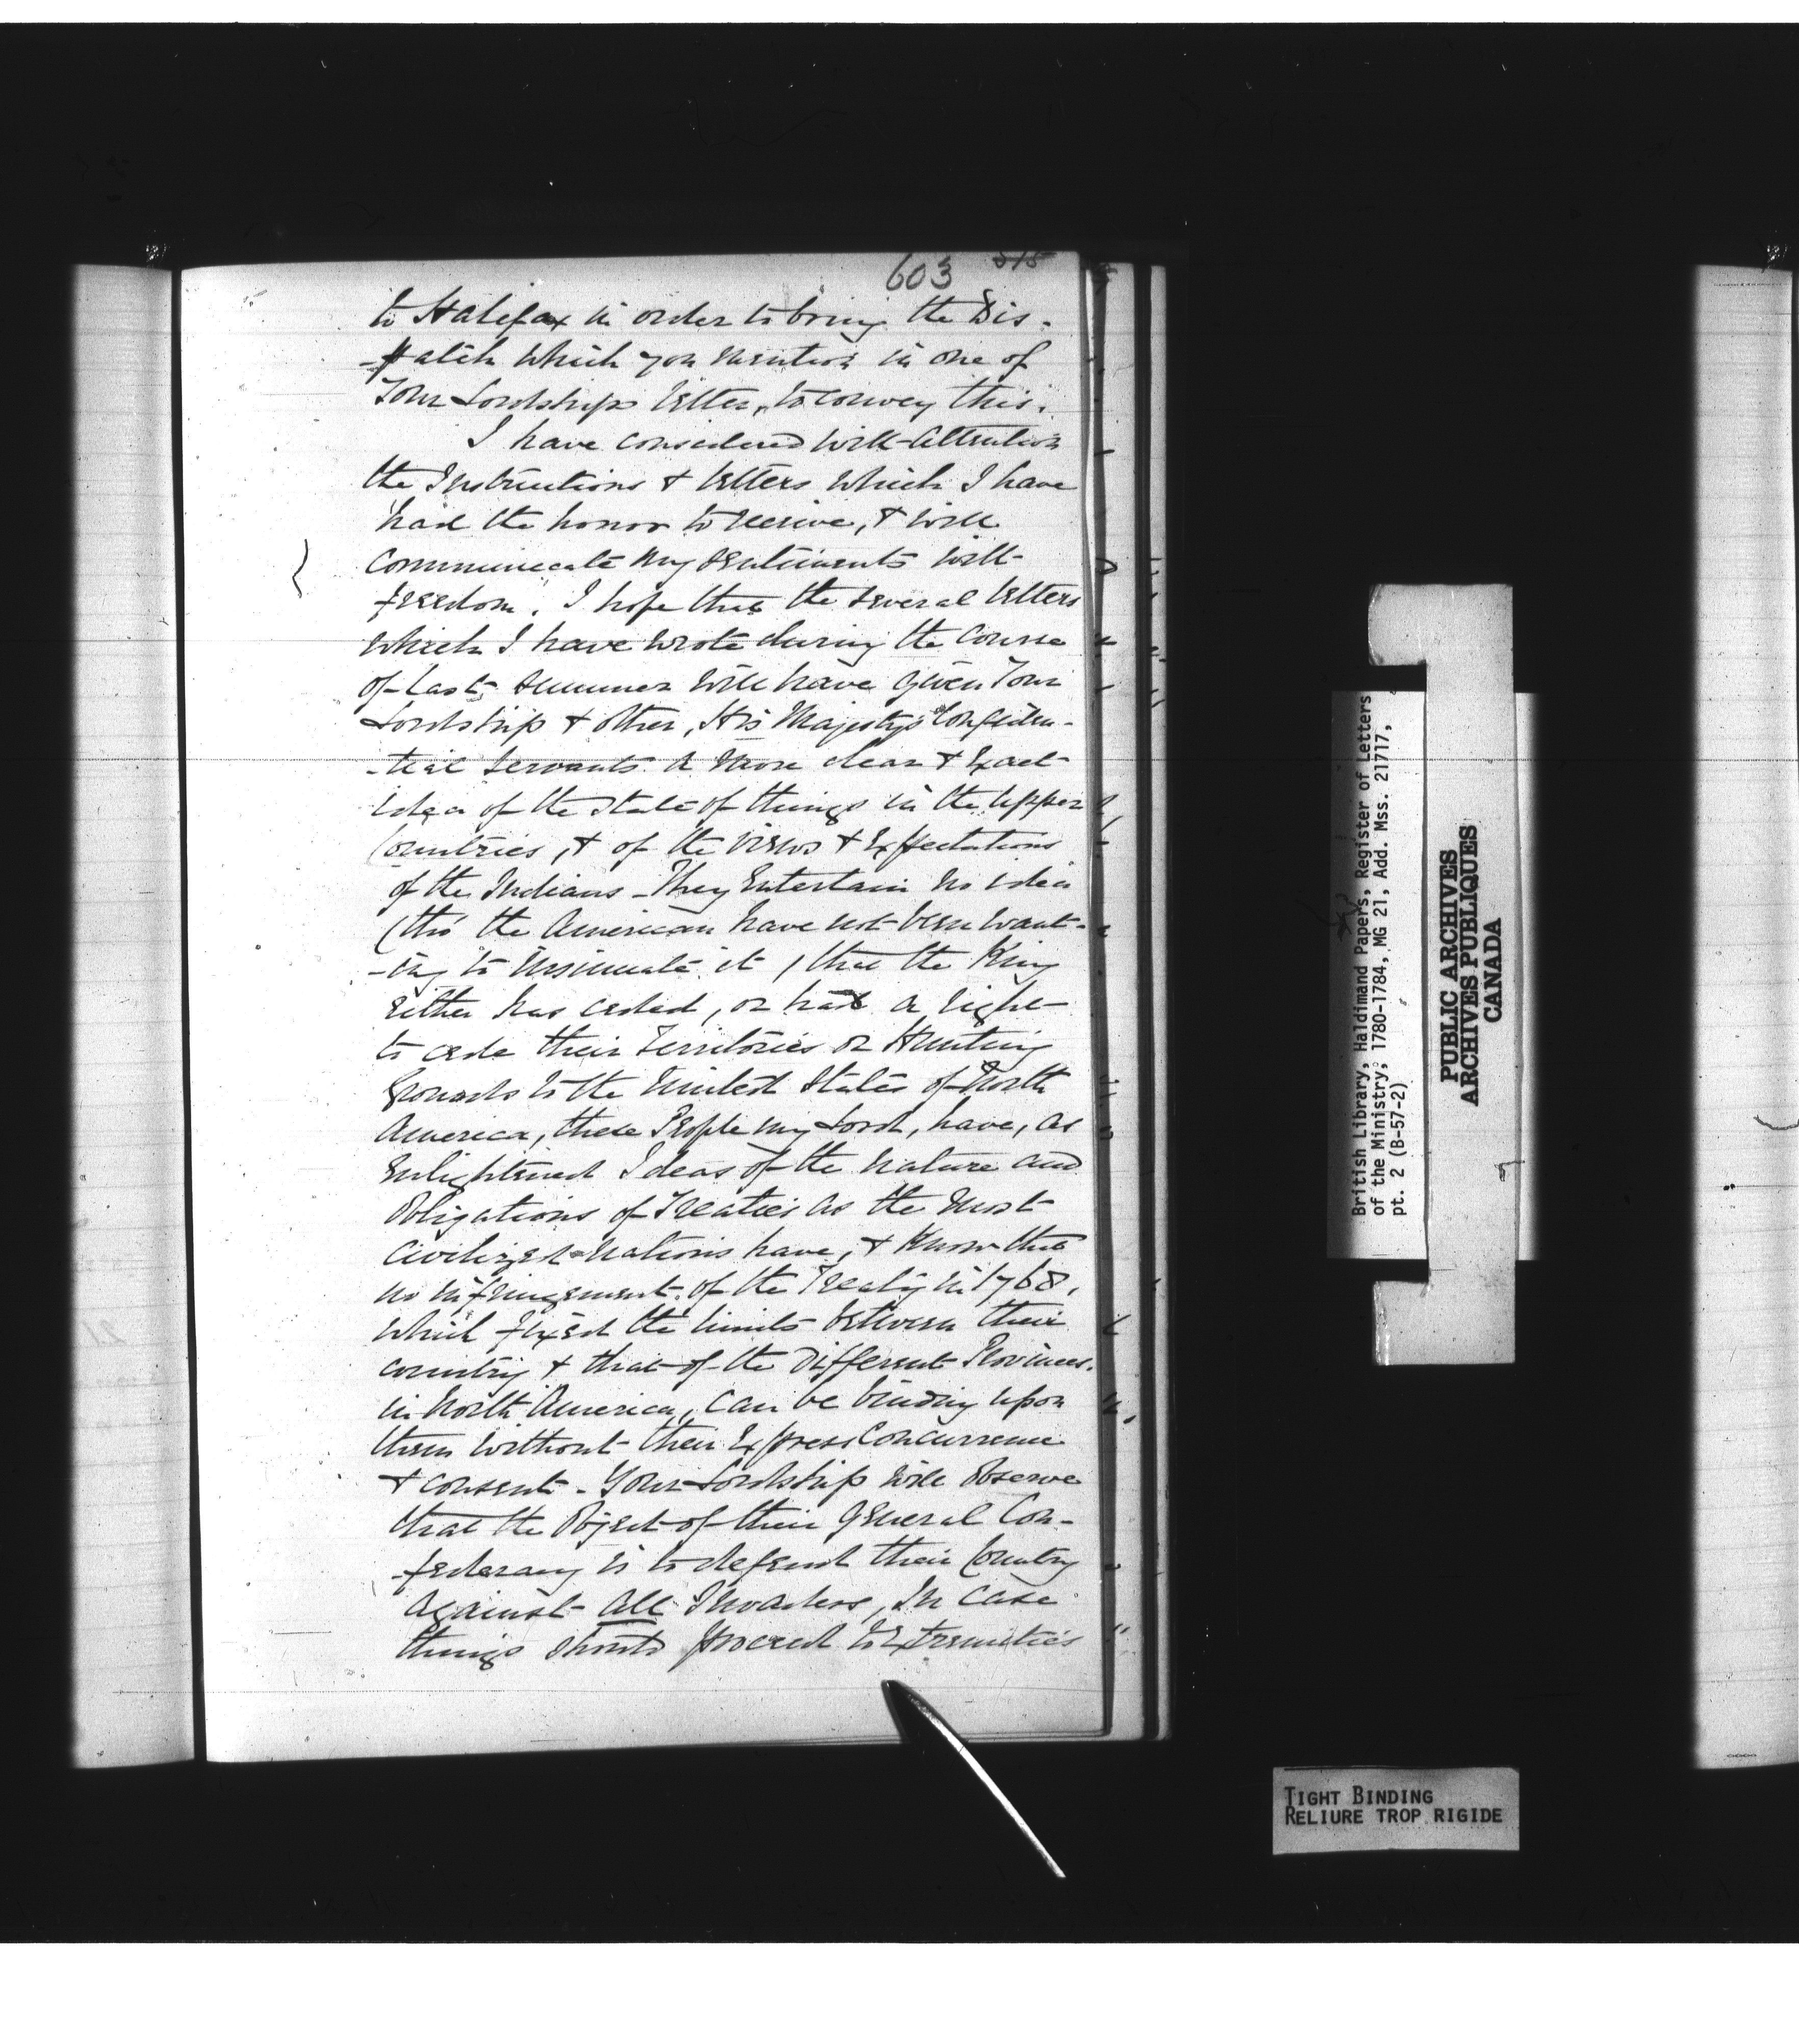 603 515
to Halifax in order to bring the Dis-
-patch which you mention in one of
Your Lordships letter, to convey this.
I have considered with Attention
the Instructions & letters which I have
had the honor to receive, & will
communicate my sentiments with
freedom. I hope that the several letters
which I have wrote during the Course
of last summer will have given Your
Lordship & other, His Majesty's Confiden-
-tial Servants a more clear & Exact
idea of the State of things in the upper
Countries, & of the views & Expectations
of the Indians - They Entertain no idea
(tho' the American have not been want-
-ing to insinuate it) that the King
either has ceded, or had a right
to cede their Territories or Hunting
Grounds to the United States of North
America, these People my Lord, have, as
enlightened Ideas of the nature and
Obligations of Treaties as the most
Civilized nations have, & know that
no infringement of the Treaty in 1768,
which fixed the limits between their
country & that of the Different Provinces
in North America, can be binding upon
them without their Express Concurrence
& consent - Your Lordship will Observe
that the Object of their General Con-
-federacy is to defend their Country
against all Invaders, In case
things should proceed to Extremities
British Library, Haldimand Papers, Register of Letters
of the Ministry, 1780-1784, MG 21, Add. Mss. 21717,
pt. 2 (B-57-2)
PUBLIC ARCHIVES
ARCHIVES PUBLIQUES
CANADA
TIGHT BINDING
RELIURE TROP RIGIDE